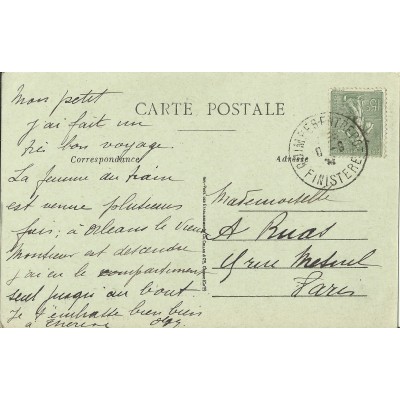 CARTE POSTALE
Correspondance
Adresse
Mon petit
j'ai fait un
très bon voyage
La femme du train
est venue plusieurs
fois; à Orléans le vieux
Monsieur est descendu
j'ai eu le compartiment
seul jusqu'au bout.
Je t'embrasse bien bien
à
Mademoiselle
A Ruas
rue
Paris
QUIMPER
FINISTERE